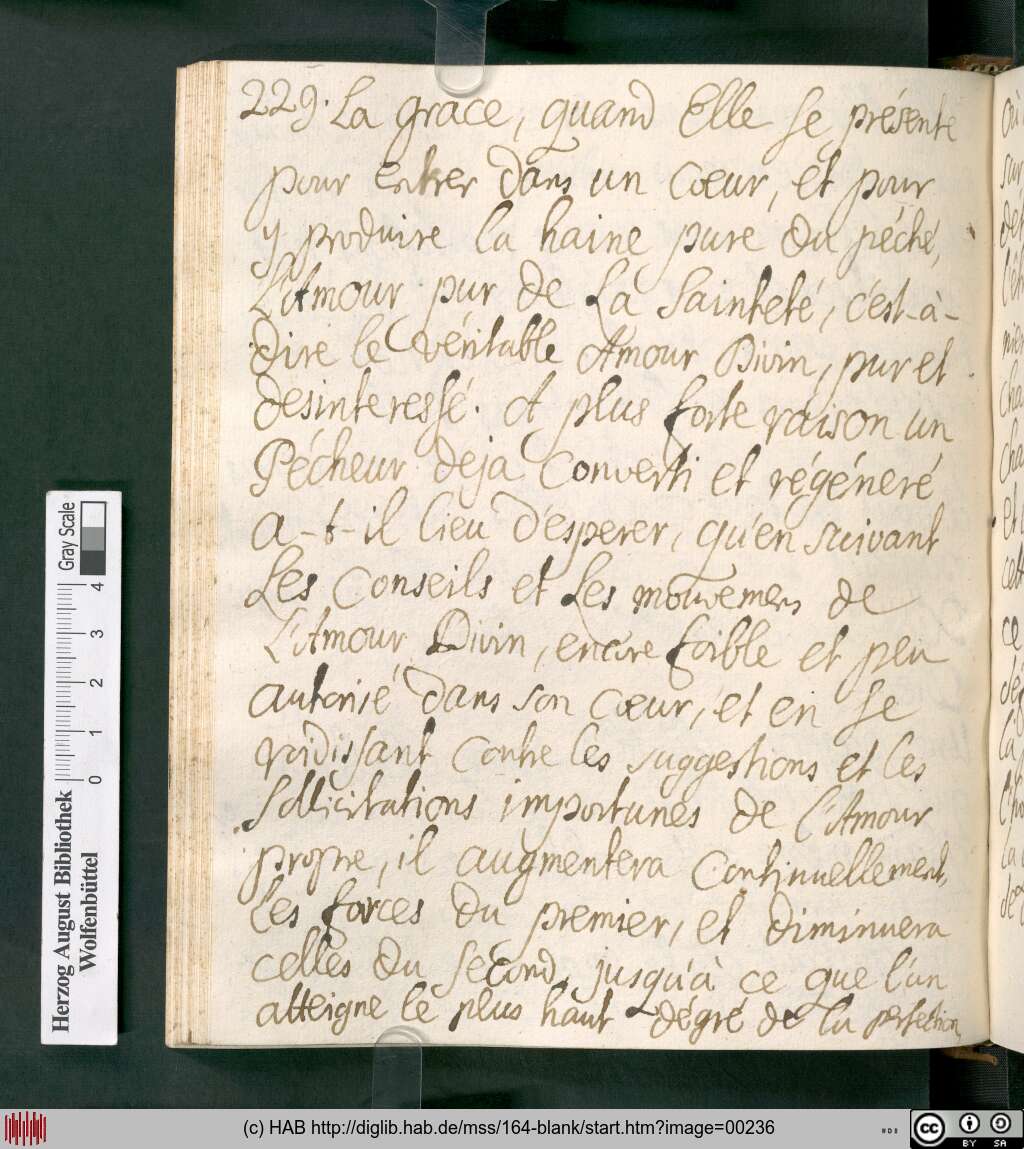 229. La grace, quand Elle se présente
pour entrer dans un Cœur, et pour
y produire la haine pure du péché,
L'Amour pur de La Sainteté, c'est-à-
dire le véritable Amour Divin, pur et
desinteressé. A plus forte raison un
Pécheur deja Converti et régéneré
a-t-il lieu d'esperer, qu'en suivant
Les Conseils et Les mouvemens de
L'Amour Divin, encore foible et peu
autorisé dans son Cœur, et en se
roidissant Contre les suggestions et les
Sollicitations importunes de l'Amour
propre, il augmentera Continuellement,
les forces du premier, et diminuera
celles du second, jusqu'à ce que l'un
atteigne le plus haut dégré de la perfection
Gray Scale
4
3
2
1
0
Herzog August Bibliothek
Wolfenbüttel
(c) HAB http://diglib.hab.de/mss/164-blank/start.htm?image=00236
cc BY SA